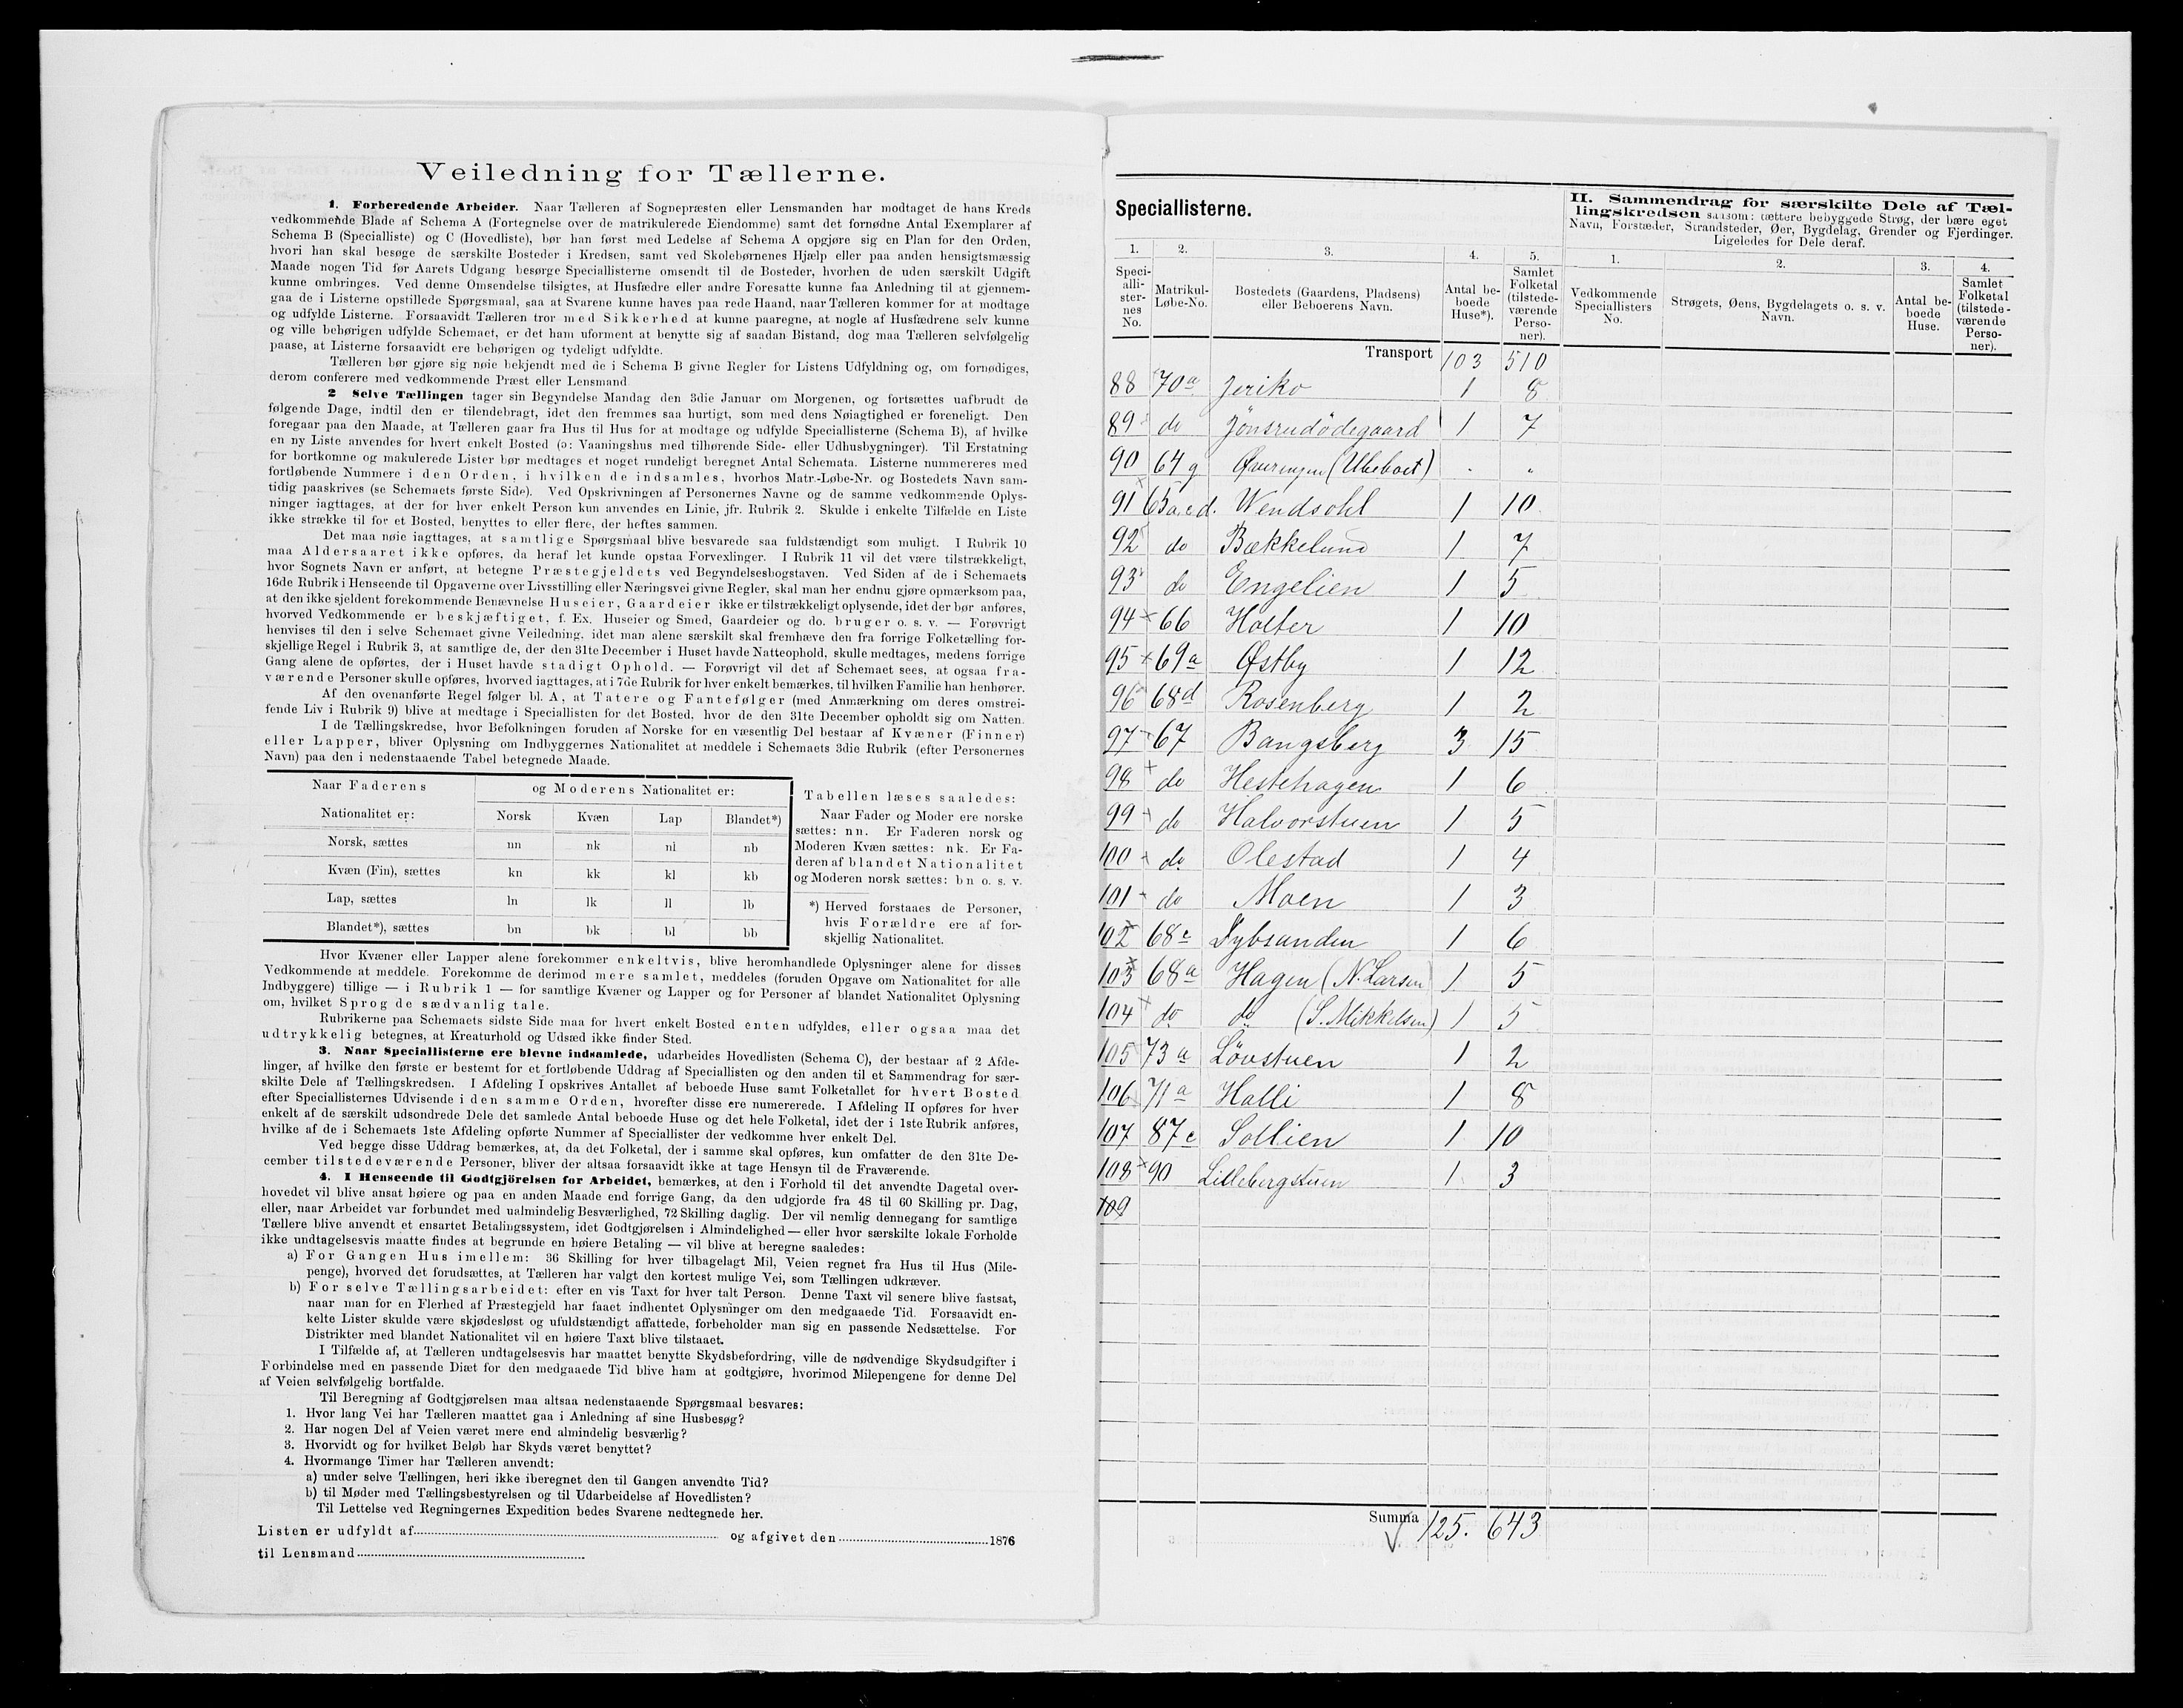 Veiledning for Tællerne.
1. Forberedende Arbeider. Naar Tælleren af Sognepræsten eller Lensmanden har modtaget de hans Kreds
vedkommende Blade af Schema A (Fortegnelse over de matrikulerede Eiendomme) samt det fornødne Antal Exemplarer af
Schema B (Specialliste) og C (Hovedliste), bør han først med Ledelse af Schema A opgjøre sig en Plan for den Orden,
hvori han skal besøge de særskilte Bosteder i Kredsen, samt ved Skolebørnenes Hjælp eller paa anden hensigtsmæssig
Maade nogen Tid før Aarets Udgang besørge Speciallisterne omsendt til de Bosteder, hvorhen de uden særskilt Udgift
kunne ombringes. Ved denne Omsendelse tilsigtes, at Husfædre eller andre Foresatte kunne faa Anledning til at gjennem-
gaa de i Listerne opstillede Spørgsmaal, saa at Svarene kunne haves paa rede Haand, naar Tælleren kommer for at modtage
og udfylde Listerne. Forsaavidt Tælleren tror med Sikkerhed at kunne paaregne, at nogle af Husfædrene selv kunne
og ville behørigen udfylde Schemaet, er det ham uforment at benytte sig af saadan Bistand, dog maa Tælleren selvfølgelig
paase, at Listerne forsaavidt ere behørigen og tydeligt udfyldte.
Tælleren bør gjøre sig nøie bekjendt med de i Schema B givne Regler for Listens Udfyldning og, om fornødiges,
derom conferere med vedkommende Præst eller Lensmand
2 Selve Tællingen tager sin Begyndelse Mandag den 3die Januar om Morgenen, og fortsættes uafbrudt de
følgende Dage, indtil den er tilendebragt, idet den fremmes saa hurtigt, som med dens Nøiagtighed er foreneligt. Den
foregaar paa den Maade, at Tælleren gaar fra Hus til Hus for at modtage og udfylde Speciallisterne (Schema B), af hvilke
en ny Liste anvendes for hvert enkelt Bosted (ɔ: Vaaningshus med tilhørende Side- eller Udhusbygninger). Til Erstatning
for bortkomne og makulerede Lister bør medtages et noget rundeligt beregnet Antal Schemata. Listerne nummereres med
fortløbende Nummere i den Orden, i hvilken de indsamles, hvorhos Matr.-Løbe-Nr. og Bostedets Navn sam-
tidig paaskrives (se Schemaets første Side). Ved Opskrivningen af Personernes Navne og de samme vedkommende Oplys-
ninger iagttages, at der for hver enkelt Person kun anvendes en Linie, jfr. Rubrik 2. Skulde i enkelte Tilfælde en Liste
ikke strække til for et Bosted, benyttes to eller flere, der heftes sammen.
Det maa nøie iagttages, at samtlige Spørgsmaal blive besvarede saa fuldstændigt som muligt. I Rubrik 10
maa Aldersaaret ikke opføres, da heraf let kunde opstaa Forvexlinger. I Rubrik 11 vil det være tilstrækkeligt,
hvor Sognets Navn er anført, at betegne Præstegjeldets ved Begyndelsesbogstaven. Ved Siden af de i Schemaets
16de Rubrik i Henseende til Opgaverne over Livsstilling eller Næringsvei givne Regler, skal man her endnu gjøre opmærksom paa,
at den ikke sjeldent forekommende Benævnelse Huseier, Gaardeier ikke er tilstrækkeligt oplysende, idet der bør anføres,
hvorved Vedkommende er beskjæftiget, f. Ex. Huseier og Smed, Gaardeier og do. bruger o. s. v. — Forøvrigt
henvises til den i selve Schemaet givne Veiledning, idet man alene særskilt skal fremhæve den fra forrige Folketælling for-
skjellige Regel i Rubrik 3, at samtlige de, der den 31te December i Huset havde Natteophold, skulle medtages, medens forrige
Gang alene de opførtes, der i Huset havde stadigt Ophold. — Forøvrigt vil det af Schemaet sees, at ogsaa fra-
værende Personer skulle opføres, hvorved iagttages, at i 7de Rubrik for hver enkelt bemærkes, til hvilken Familie han henhører.
Af den ovenanførte Regel følger bl. A., at Tatere og Fantefølger (med Anmærkning om deres omstrei-
fende Liv i Rubrik 9) blive at medtage i Speciallisten for det Bosted, hvor de den 31te December opholdt sig om Natten.
I de Tællingskredse, hvor Befolkningen foruden af Norske for en væsentlig Del bestaar af Kvæner (Finner)
eller Lapper, bliver Oplysning om Indbyggernes Nationalitet at meddele i Schemaets 3die Rubrik (efter Personernes
Navn) paa den i nedenstaaende Tabel betegnede Maade.
Naar Faderens og Moderens Nationalitet er:
Nationalitet er: Norsk Kvæn Lap Blandet*)
Norsk, sættes nn nk nl nb
Kvæn (Fin), sættes kn kk kl kb
Lap, sættes ln lk ll lb
Blandet*), sættes bn bk bl bb
Tabellen læses saaledes:
Naar Fader og Moder ere norske
sættes: nn. Er Faderen norsk og
Moderen Kvæn sættes: nk. Er Fa-
deren af blandet Nationalitet
og Moderen norsk sættes: bn o. s. v.
*) Herved forstaaes de Personer,
hvis Forældre ere af for-
skjellig Nationalitet.
Hvor Kvæner eller Lapper alene forekommer enkeltvis, blive heromhandlede Oplysninger alene for disses
Vedkommende at meddele. Forekomme de derimod mere samlet, meddeles (foruden Opgave om Nationalitet for alle
Indbyggere) tillige — i Rubrik 1 — for samtlige Kvæner og Lapper og for Personer af blandet Nationalitet Oplysning
om, hvilket Sprog de sædvanlig tale.
Rubrikerne paa Schemaets sidste Side maa for hvert enkelt Bosted enten udfyldes, eller ogsaa maa det
udtrykkelig betegnes, at Kreaturhold og Udsæd ikke finder Sted.
3. Naar Speciallisterne ere blevne indsamlede, udarbeides Hovedlisten (Schema C), der bestaar af 2 Afde-
linger, af hvilke den første er bestemt for et fortløbende Uddrag af Speciallisten og den anden til et Sammendrag for sær-
skilte Dele af Tællingskredsen. I Afdeling I opskrives Antallet af beboede Huse samt Folketallet for hvert Bosted
efter Speciallisternes Udvisende i den samme Orden, hvorefter disse ere numererede. I Afdeling II opføres for hver
enkelt af de særskilt udsondrede Dele det samlede Antal beboede Huse og det hele Folketal, idet der i 1ste Rubrik anføres,
hvilke af de i Schemaets 1ste Afdeling opførte Nummer af Speciallister der vedkomme hver enkelt Del.
Ved begge disse Uddrag bemærkes, at, da det Folketal, der i samme skal opføres, kun omfatter de den 31te De-
cember tilstedeværende Personer, bliver der altsaa forsaavidt ikke at tage Hensyn til de Fraværende.
4. I Henseende til Godtgjörelsen for Arbeidet, bemærkes, at den i Forhold til det anvendte Dagetal over-
hovedet vil blive ansat høiere og paa en anden Maade end forrige Gang, da den udgjorde fra 48 til 60 Skilling pr. Dag,
eller, naar Arbeidet var forbundet med ualmindelig Besværlighed, 72 Skilling daglig. Der vil nemlig dennegang for samtlige
Tællere blive anvendt et ensartet Betalingssystem, idet Godtgjørelsen i Almindelighed — eller hvor særskilte lokale Forholde
ikke undtagelsesvis maatte findes at begrunde en høiere Betaling — vil blive at beregne saaledes:
a) For Gangen Hus imellem: 36 Skilling for hver tilbagelagt Mil, Veien regnet fra Hus til Hus (Mile-
penge), hvorved det forudsættes, at Tælleren har valgt den kortest mulige Vei, som Tællingen udkræver.
b) For selve Tællingsarbeidet: efter en vis Taxt for hver talt Person. Denne Taxt vil senere blive fastsat,
naar man for en Flerhed af Præstegjeld har faaet indhentet Oplysninger om den medgaaede Tid. Forsaavidt en-
kelte Lister skulde være skjødesløst og ufuldstændigt affattede, forbeholder man sig en passende Nedsættelse. For
Distrikter med blandet Nationalitet vil en høiere Taxt blive tilstaaet.
I Tilfælde af, at Tælleren undtagelsesvis har maattet benytte Skydsbefordring, ville de nødvendige Skydsudgifter i
Forbindelse med en passende Diæt for den medgaaede Tid blive ham at godtgjøre, hvorimod Milepengene for denne Del
af Veien selvfølgelig bortfalde.
Til Beregning af Godtgjørelsen maa altsaa nedenstaaende Spørgsmaal besvares:
1. Hvor lang Vei har Tælleren maattet gaa i Anledning af sine Husbesøg?
2. Har nogen Del af Veien været mere end almindelig besværlig?
3. Hvorvidt og for hvilket Beløb har Skyds været benyttet?
4. Hvormange Timer har Tælleren anvendt:
a) under selve Tællingen, heri ikke iberegnet den til Gangen anvendte Tid?
b) til Møder med Tællingsbestyrelsen og til Udarbeidelse af Hovedlisten?
Til Lettelse ved Regningernes Expedition bedes Svarene nedtegnede her.
Listen er udfyldt af og afgivet den 1876
til Lensmand
Speciallisterne.
II. Sammendrag for særskilte Dele af Tæl-
lingskredsen saasom: tættere bebyggede Strøg, der bære eget
Navn, Forstæder, Strandsteder, Øer, Bygdelag, Grender og Fjerdinger.
Ligeledes for Dele deraf.
1. 2. 3. 4. 5. 1. 2. 3. 4.
Speci-
alli-
ster-
nes
No.
Matrikul-
Løbe-No.
Bostedets (Gaardens, Pladsens)
eller Beboerens Navn.
Antal be-
boede
Huse*).
Samlet
Folketal
(tilstede-
værende
Perso-
ner).
Vedkommende
Speciallisters
No.
Strøgets, Øens, Bygdelagets o. s. v.
Navn.
Antal be-
boede
Huse.
Samlet
Folketal
(tilstede-
værende
Perso-
ner).
Transport 103 510
88 70a Jeriko 1 8
89 do Jönsrudödegaard 1 7
90 64g Øveringen (Ubeboet) " "
91 65a.c.d. Wendsohl 1 10
92 do Bækkelund 1 7
93 do Engelien 1 5
94 × 66 Holter 1 10
95 × 69a Østby 1 12
96 68d Rosenberg 1 2
97 67 Bangsberg 3 15
98 × do Hestehagen 1 6
99 do Halvorstuen 1 5
100 do Olestad 1 4
101 do Moen 1 3
102 × 68c Sybsanden 1 6
103 × 68a Hagen (N. Larsen) 1 5
104 × do do (S. Mikkelsen) 1 5
105 73a Lövstuen 1 2
106 71a Halli 1 8
107 87c Sollien 1 10
108 × 90 Lillebergstuen 1 3
109
Summa 125. 643